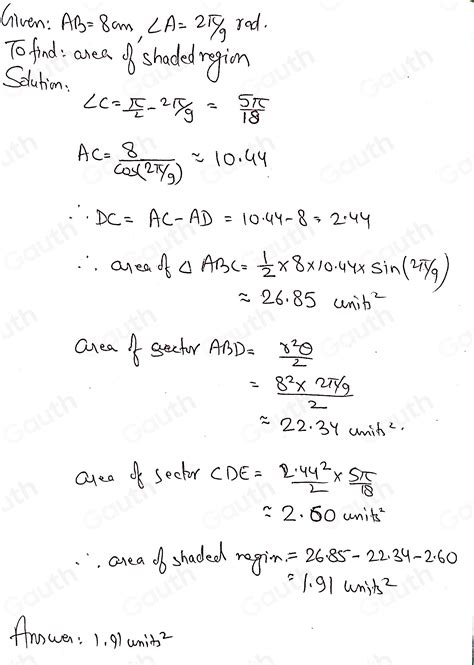 Given: AB = 8cm, ∠A = 2π/9 rad.
To find: area of shaded region
Solution:
∠C = π/2 - 2π/9 = 5π/18
AC = 8/cos(2π/9) ≈ 10.44
∴ DC = AC - AD = 10.44 - 8 = 2.44
∴ area of △ ABC = 1/2 × 8 × 10.44 × sin(2π/9)
≈ 26.85 unit²
area of sector ABD = r²θ/2
= 8² × 2π/9 / 2
≈ 22.34 units².
area of sector CDE = 2.44²/2 × 5π/18
≈ 2.60 units²
∴ area of shaded region = 26.85 - 22.34 - 2.60
= 1.91 units²
Answer: 1.91 units²
Gauth